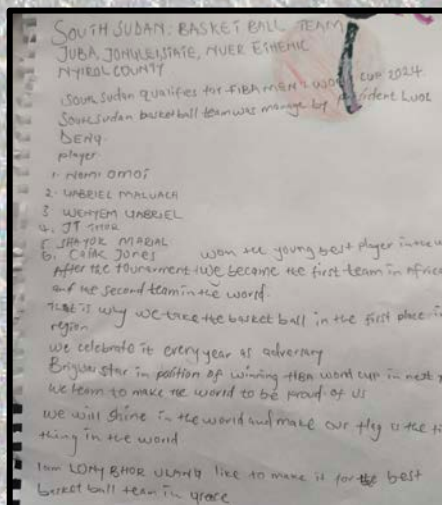 SOUTH SUDAN: BASKET BALL TEAM
JUBA, JONGLEI STATE, NUER ETHENIC
NYIROL COUNTY
South Sudan qualifies for FIBA MEN'S WORD CUP 2024
South Sudan basketball team was manage by president LUOL
DENG.
player
1. NOMI OMOT
2. GABRIEL MALUACH
3 WENYEM GABRIEL
4. JT THOR
5 SHAYOK MARIAL
6. Carlik Jones won the young best player in the
After the tounarment we became the first team in Africa
and the second team in the world.
That is why we take the basket ball in the first place in
region
we celebrate it every year as adversary
star in position of winning word cup in next
We team to make the world to be proud of us
we will shine in the world and make our flag is the
thing in the world
I am LONY BHOR like to make it for the best
basket ball team in grace